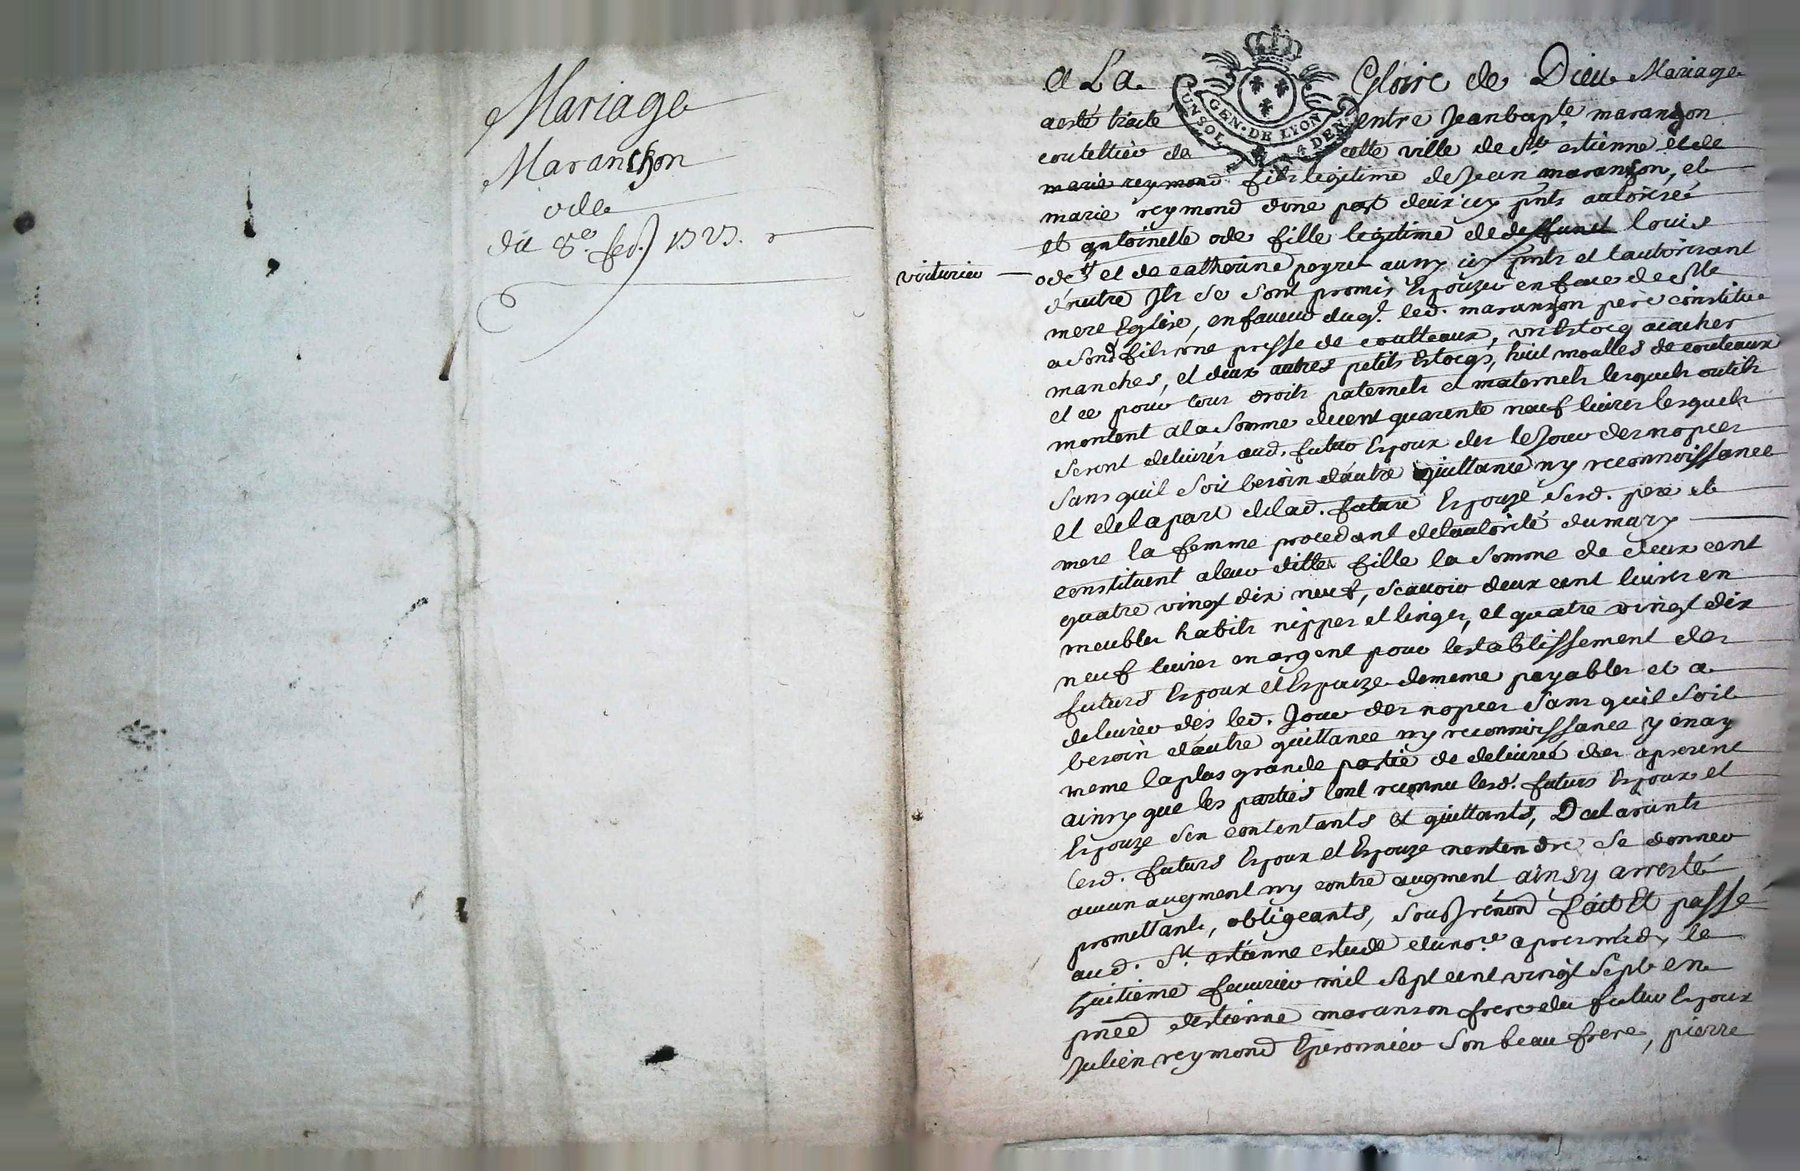 Mariage
Maranchon
ode
du 8e. fev. 1727.
GEN. DE LYON
UN SOL 4 DEN.
voiturier
a La Gloire de Dieu Mariage
a esté traité entre Jean bapte maranson
coutellier de cette ville de St estienne et de
marie reymond fils legitime de Jean maranson, et
marie reymond donc part deux icy pnts autorisée
et antoinette ode fille legitime de deffunct louis
ode et de catherine peyret aussy icy pnts et l'autorisant
d'autre Ils se sont promis Espouzer en face de Ste
mere Eglise, en faveur duql. led. maranson pere constitue
a sond fils une presse de coutteaux, un Estocq a cacher
manches, et deux autres petits Estocqs, huit moulles de couteaux
et ce pour tous droits paternels et maternels lesquels outils
montent a la somme de cent quarente neuf livres lesquels
seront delivrés aud. futur Espoux des le Jour des nopces
sans quil soit besoin dautre quittance ny reconnoissance
et de la part de lad. future Espouze sesd. pere et
mere la femme procedant de lautorité du mary
constituent a leur ditte fille la somme de deux cent
quatre vingt dix neuf, scavoir deux cent livres en
meubles habits nippes et linges, et quatre vingt dix
neuf livres en argent pour lestablissement des
futurs Espoux et Espouze de meme payables et a
delivrer dés led. Jour des nopces sans quil soit
besoin d'autre quittance ny reconnoissance y en ay
meme la plus grande partie de delivrée des apresent
ainsy que les parties l'ont reconnu lesd. futurs Espoux et
Espouze s'en contentants et quittants, Declarants
lesd. futurs Espoux et Espouze n'entendre se donner
aucun augment ny contre augment ainsy arresté
promettants, obligeants, sous renond fait Et passé
aud. St. estienne estude du nore apres midy le
huitieme fevrier mil sept cent vingt sept en
pnce d'estienne maranson frere du futur Espoux
Julien reymond Eperonnier son beau frere, pierre